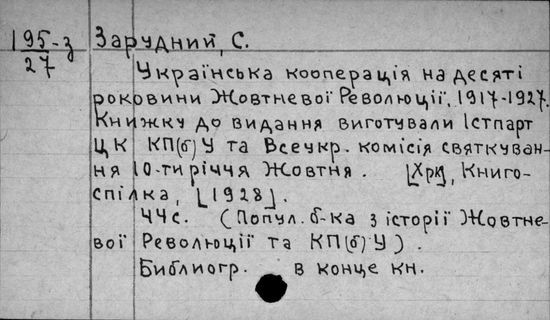 195-з
27
Зарудний, С.
Українська кооперація на десяті
роковини Жовтневої Революції, 1917-1927.
Книжку до видання виготували Істпарт
ЦК КП(б)У та Всеукр. комісія святкуван-
ня 10-тиріччя Жовтня. [Хрк], Книго-
спілка, [1928].
44с. (Попул. б-ка з історії Жовтне-
вої Революції та КП(б)У).
Библиогр. в конце кн.